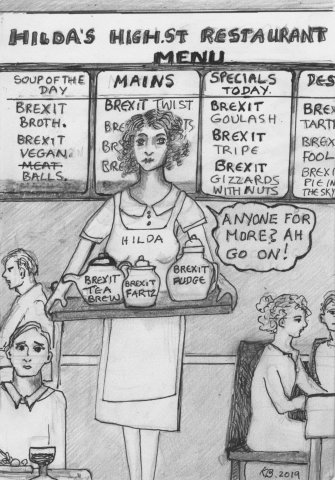 HILDA'S HIGH.ST RESTAURANT
MENU
SOUP OF THE
DAY
BREXIT
BROTH.
BREXIT
VEGAN
MEAT
BALLS.
MAINS
BREXIT TWIST
BRE
BRE
BRE
SPECIALS
TODAY.
BREXIT
GOULASH.
BREXIT
TRIPE
BREXIT
GIZZARDS
WITH NUTS
DES
BREX
TART
BREX
FOOL
BREXI
PIE IN
THE SKY
ANYONE FOR
MORE? AH
GO ON!
HILDA
BREXIT
TEA
BREW
BREXIT
FARTZ
BREXIT
FUDGE
2019